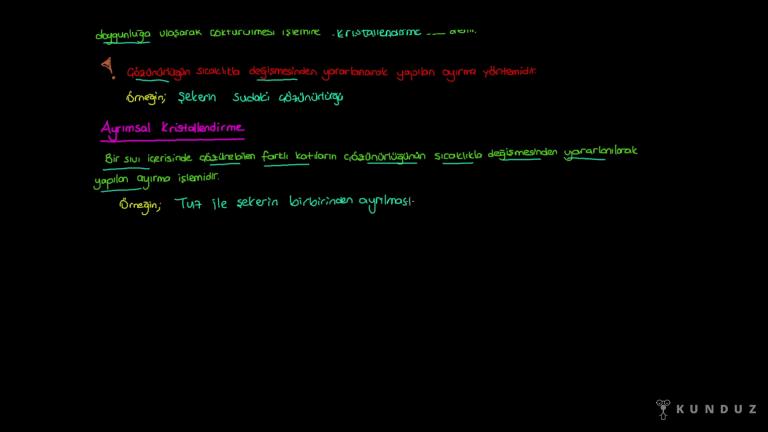 doygunluğa ulaşarak çöktürülmesi işlemine kristallendirme denir.
! Çözünürlüğün sıcaklıkla değişmesinden yararlanarak yapılan ayırma yöntemidir.
Örneğin; Şekerin sudaki çözünürlüğü
Ayrımsal Kristallendirme
Bir sıvı içerisinde çözünebilen farklı katıların çözünürlüğünün sıcaklıkla değişmesinden yararlanılarak
yapılan ayırma işlemidir.
Örneğin; Tuz ile şekerin birbirinden ayrılması.
KUNDUZ